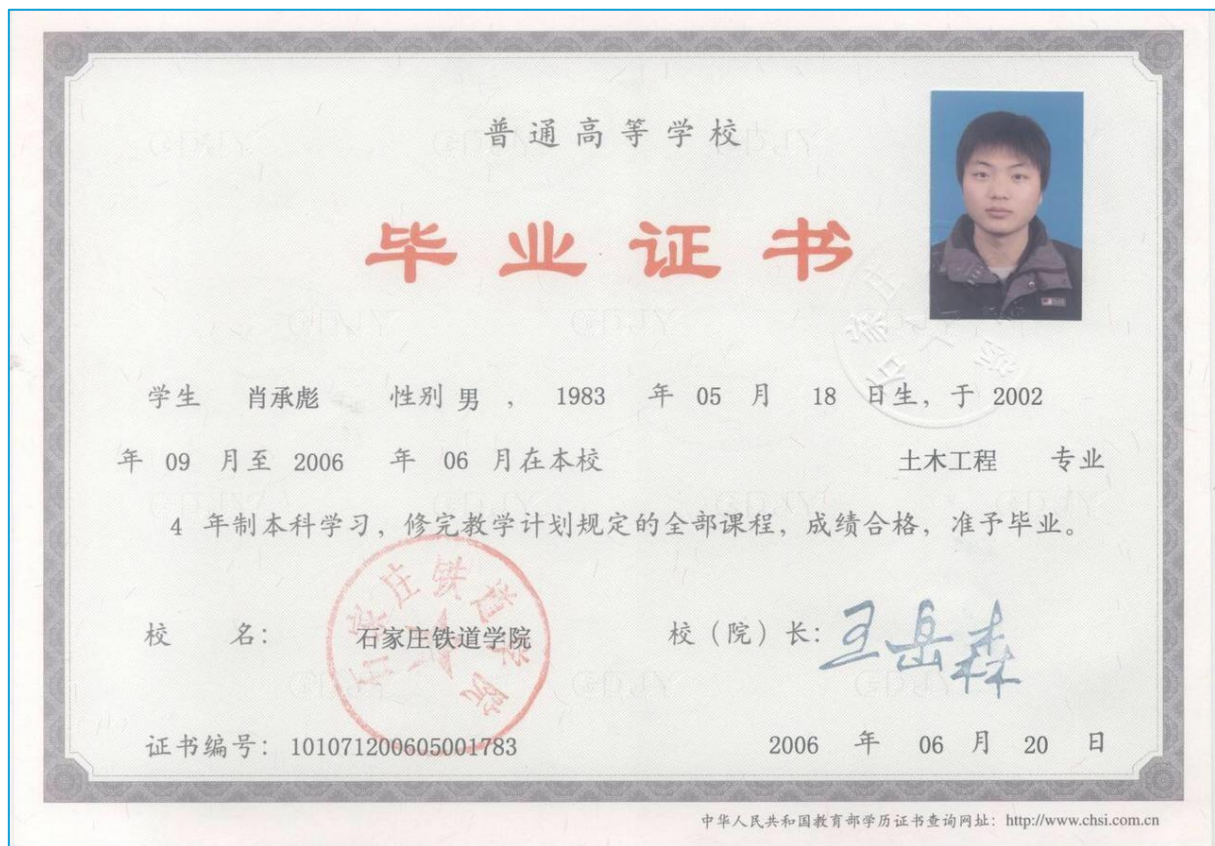 普通高等学校
毕业证书
学生 肖承彪 性别 男 , 1983 年 05 月 18 日生, 于 2002
年 09 月至 2006 年 06 月在本校 土木工程 专业
4 年制本科学习, 修完教学计划规定的全部课程, 成绩合格, 准予毕业。
校 名: 石家庄铁道学院 校（院）长: 王岳森
石家庄铁道学院
证书编号: 101071200605001783 2006 年 06 月 20 日
中华人民共和国教育部学历证书查询网址: http://www.chsi.com.cn